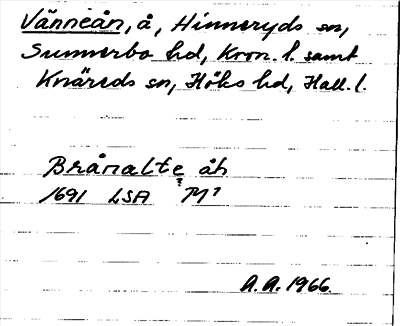 Vänneån, å, Hinneryds sn,
Sunnerbo hd, Kron. l. samt
Knäreds sn, Höks hd, Hall. l.
Brånalte åh
?
1691 LSA M¹
A. A. 1966.